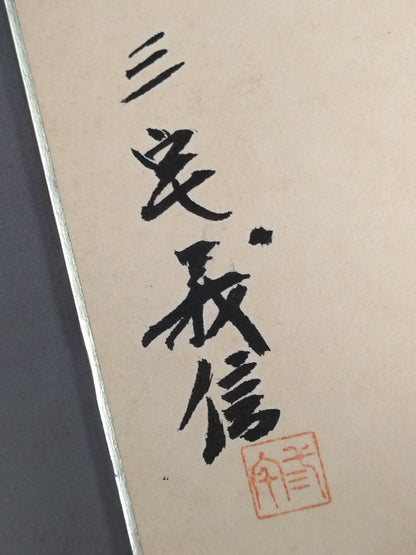 三宅義信